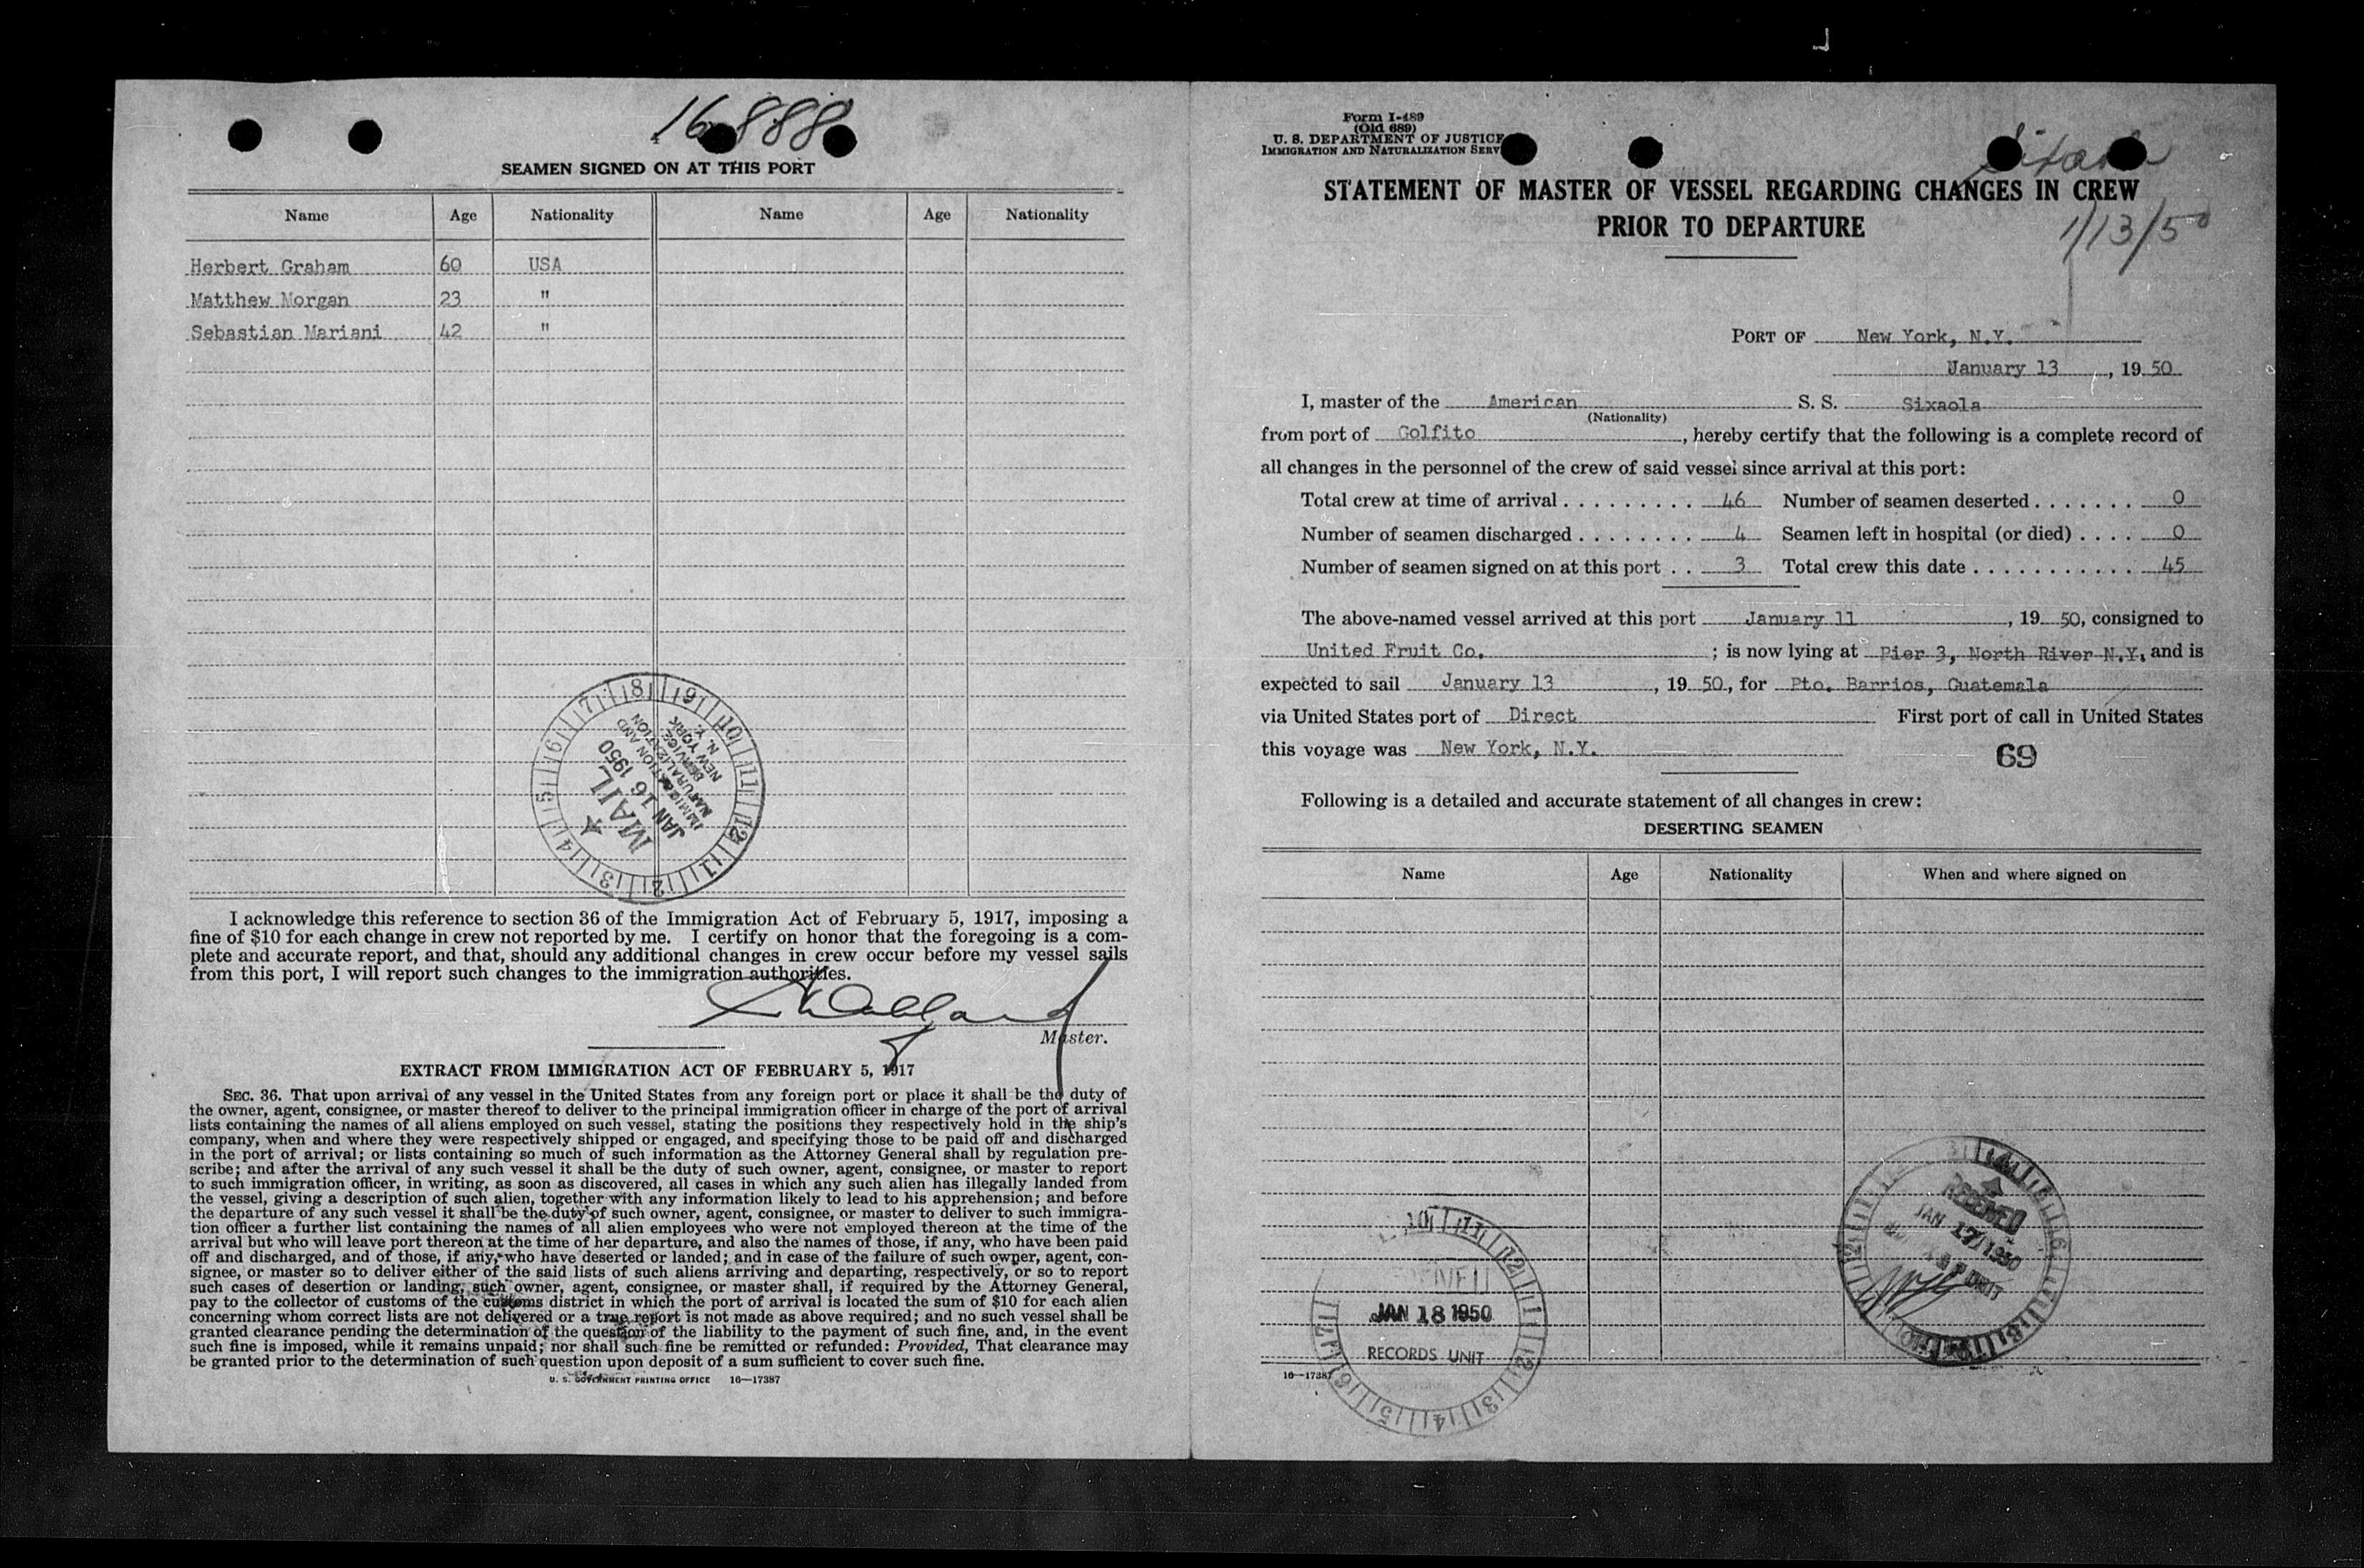 16888
SEAMEN SIGNED ON AT THIS PORT
Name Age Nationality Name Age Nationality
Herbert Graham 60 USA
Matthew Morgan 23 "
Sebastian Mariani 42 "
MAIL
JAN 16 1950
IMMIGRATION AND
NATURALIZATION
SERVICE
NEW YORK
N. Y.
I acknowledge this reference to section 36 of the Immigration Act of February 5, 1917, imposing a
fine of $10 for each change in crew not reported by me. I certify on honor that the foregoing is a com-
plete and accurate report, and that, should any additional changes in crew occur before my vessel sails
from this port, I will report such changes to the immigration authorities.
Master.
EXTRACT FROM IMMIGRATION ACT OF FEBRUARY 5, 1917
SEC. 36. That upon arrival of any vessel in the United States from any foreign port or place it shall be the duty of
the owner, agent, consignee, or master thereof to deliver to the principal immigration officer in charge of the port of arrival
lists containing the names of all aliens employed on such vessel, stating the positions they respectively hold in the ship's
company, when and where they were respectively shipped or engaged, and specifying those to be paid off and discharged
in the port of arrival; or lists containing so much of such information as the Attorney General shall by regulation pre-
scribe; and after the arrival of any such vessel it shall be the duty of such owner, agent, consignee, or master to report
to such immigration officer, in writing, as soon as discovered, all cases in which any such alien has illegally landed from
the vessel, giving a description of such alien, together with any information likely to lead to his apprehension; and before
the departure of any such vessel it shall be the duty of such owner, agent, consignee, or master to deliver to such immigra-
tion officer a further list containing the names of all alien employees who were not employed thereon at the time of the
arrival but who will leave port thereon at the time of her departure, and also the names of those, if any, who have been paid
off and discharged, and of those, if any, who have deserted or landed; and in case of the failure of such owner, agent, con-
signee, or master so to deliver either of the said lists of such aliens arriving and departing, respectively, or so to report
such cases of desertion or landing, such owner, agent, consignee, or master shall, if required by the Attorney General,
pay to the collector of customs of the customs district in which the port of arrival is located the sum of $10 for each alien
concerning whom correct lists are not delivered or a true report is not made as above required; and no such vessel shall be
granted clearance pending the determination of the question of the liability to the payment of such fine, and, in the event
such fine is imposed, while it remains unpaid; nor shall such fine be remitted or refunded: Provided, That clearance may
be granted prior to the determination of such question upon deposit of a sum sufficient to cover such fine.
U. S. GOVERNMENT PRINTING OFFICE 16—17387
Form I-489
(Old 689)
U. S. DEPARTMENT OF JUSTICE
IMMIGRATION AND NATURALIZATION SERV
STATEMENT OF MASTER OF VESSEL REGARDING CHANGES IN CREW
PRIOR TO DEPARTURE
1/13/50
PORT OF New York, N.Y.
January 13, 19 50
I, master of the American S. S. Sixaola
(Nationality)
from port of Golfito, hereby certify that the following is a complete record of
all changes in the personnel of the crew of said vessel since arrival at this port:
Total crew at time of arrival . . . . . . . . . 46 Number of seamen deserted . . . . . . . 0
Number of seamen discharged . . . . . . . . 4 Seamen left in hospital (or died) . . . . 0
Number of seamen signed on at this port . . 3 Total crew this date . . . . . . . . . . . 45
The above-named vessel arrived at this port January 11, 19 50, consigned to
United Fruit Co. ; is now lying at Pier 3, North River N.Y. and is
expected to sail January 13, 19 50, for Pto. Barrios, Guatemala
via United States port of Direct First port of call in United States
this voyage was New York, N.Y.
69
Following is a detailed and accurate statement of all changes in crew:
DESERTING SEAMEN
Name Age Nationality When and where signed on
RECEIVED
JAN 17 1950
JAN 18 1950
RECORDS UNIT
16—17387